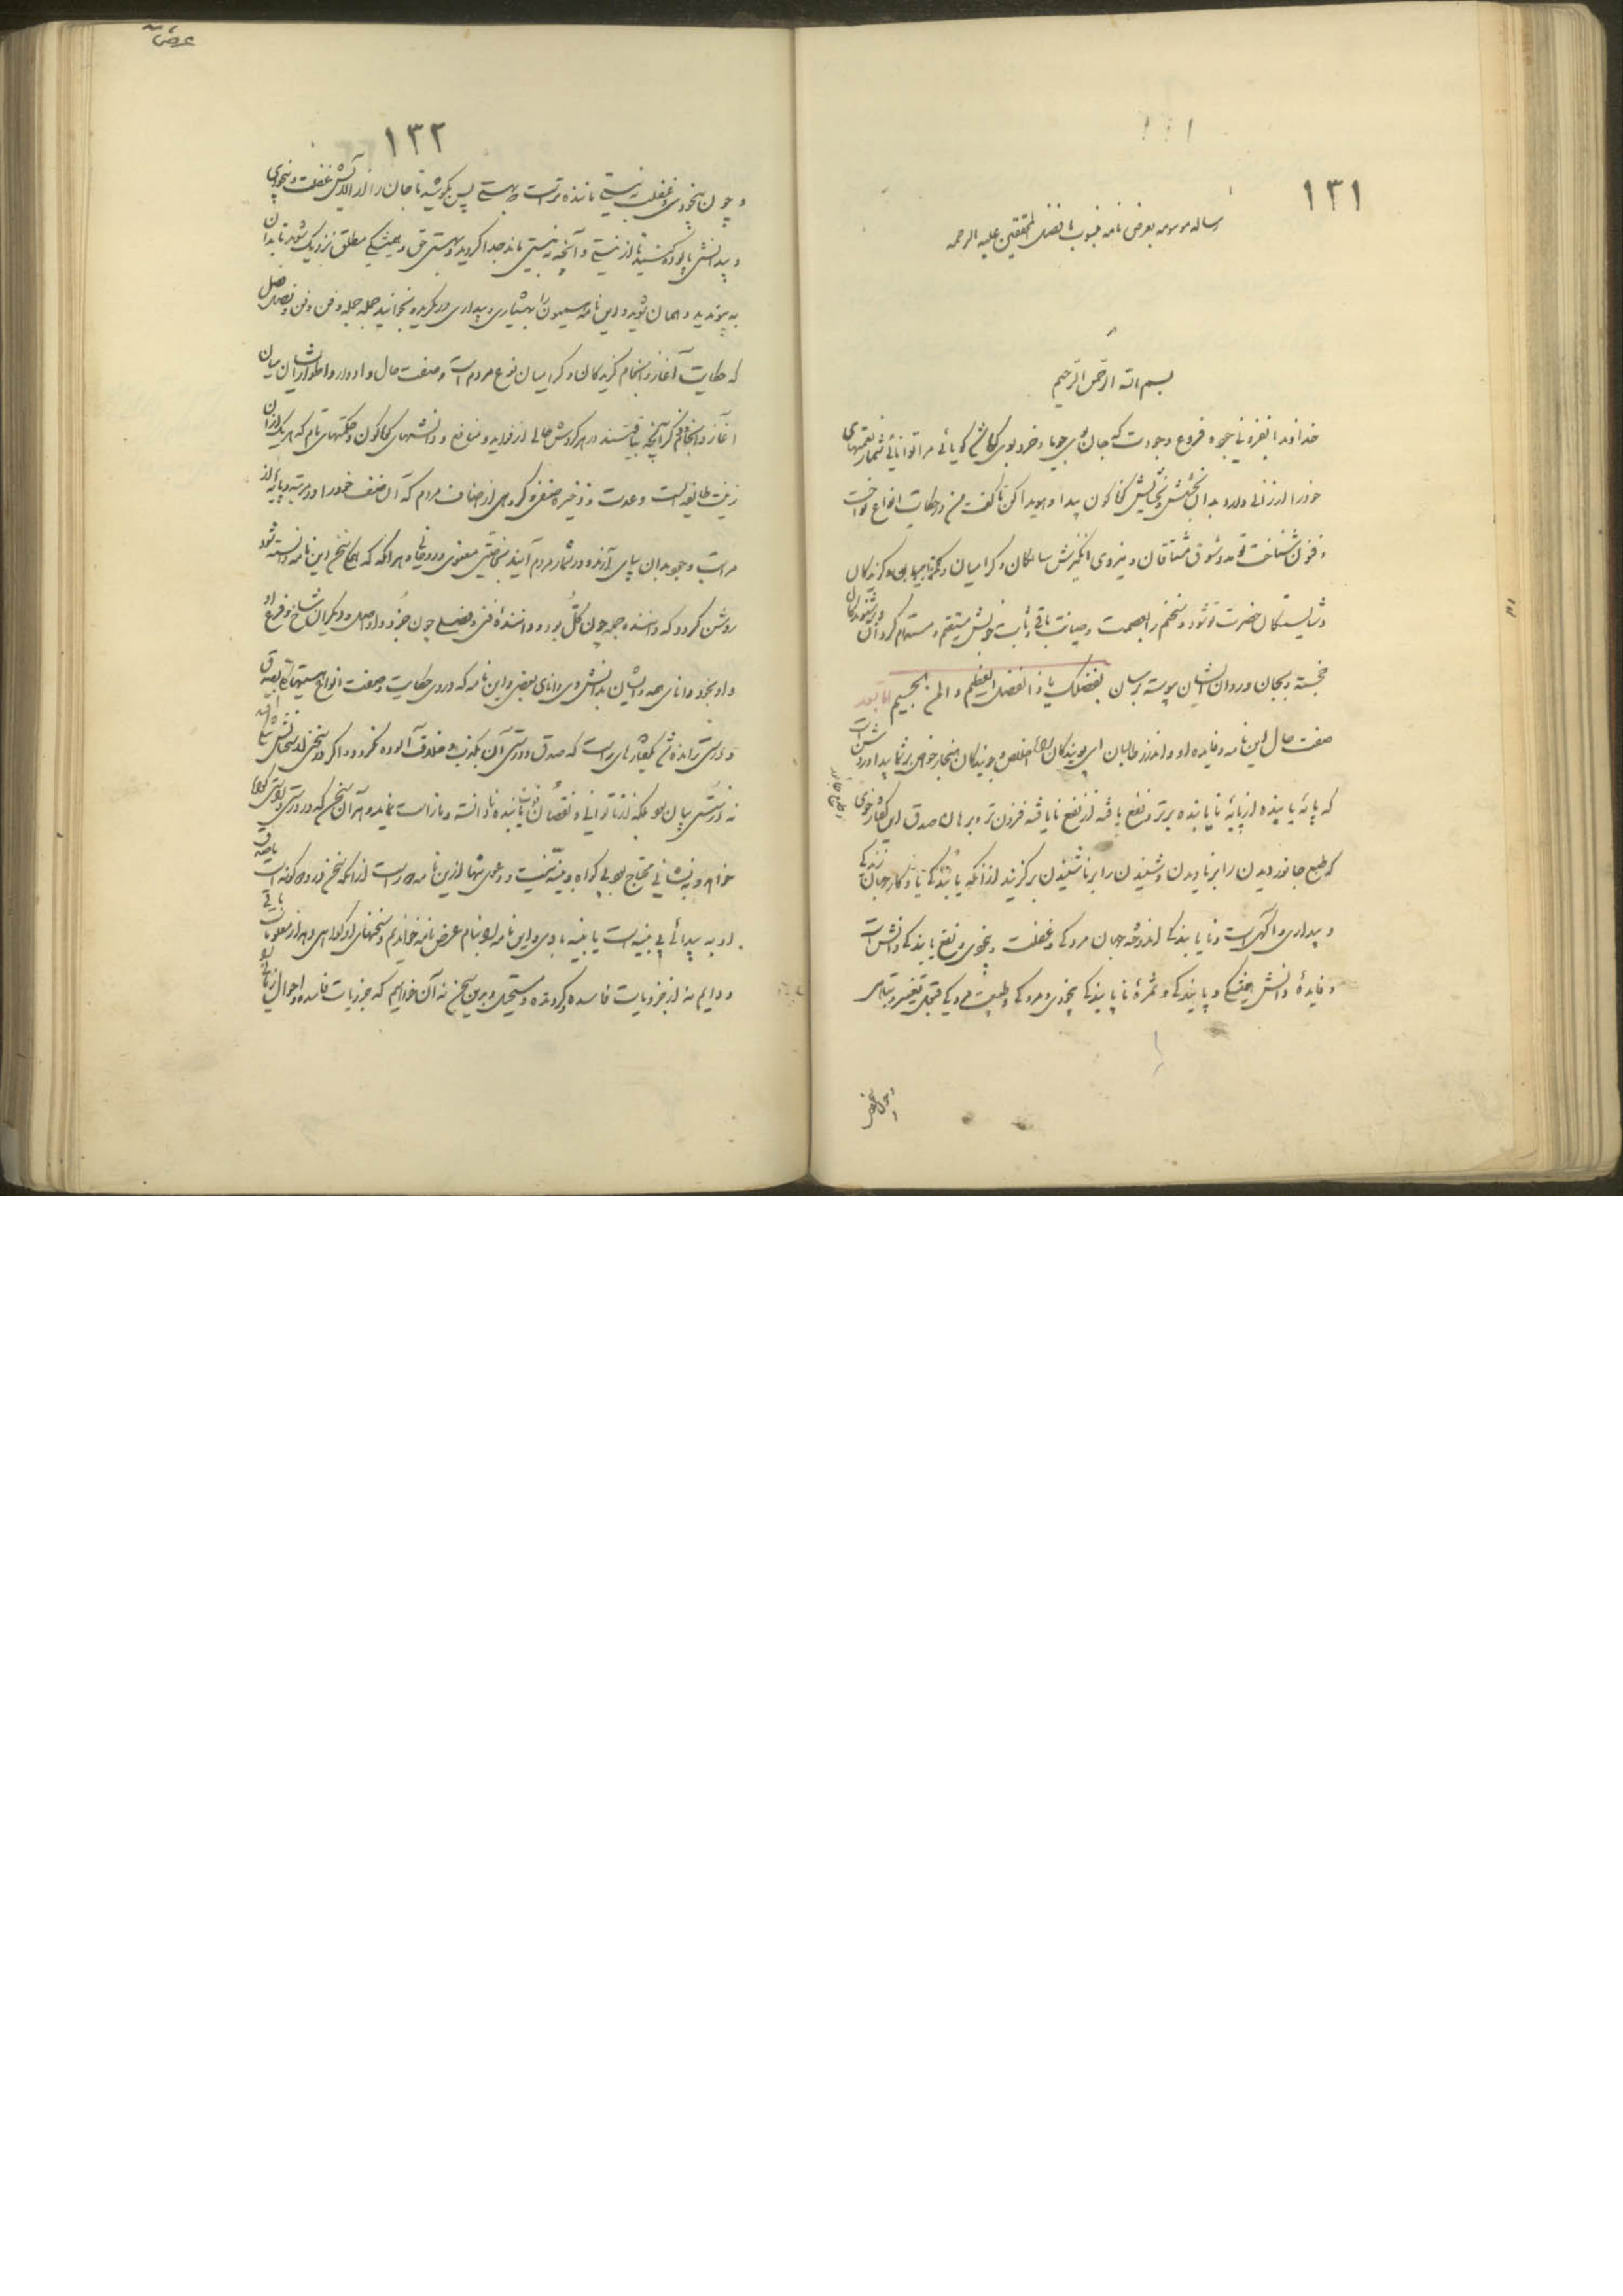 ١٣١
رساله موسومه بعرض نامه منسوب بافضل المحققین علیه الرحمه
بسم الله الرحمن الرحیم
خداوندا بفزونی جود و فروغ وجودت که جان جویا و خرد گویائی مرا توانائی شمار نعمتهای
خود را ارزانی دارد بدان بخشش و بخشایش گوناگون پیدا و هویدا کن تا گفت من در حکایت انواع نواخت
و فزون شناخت تو مدد شوق مشتاقان و نیروی انگیزش سالکان و گرامیان و گزیدگان
و شایستگان حضرت تو شود و سخنم را بعصمت و صیانت باقی و ثابت خویش مستقیم و مستدام گردان و بر شنوندگان
خجسته و بجان و روان ایشان پیوسته برسان بفضلک یا ذا الفضل العظیم و المن الجسیم اما بعد
صفت حال این نامه و فایده او و اندرز طالبان ای پویندگان راه خلاص و جویندگان هنجار خواص بر شما پیدا و روشن است
که پایهٔ یابنده از پایهٔ نایابنده برتر و نفع یافته از نفع نایافته فزون‌تر و برهان صدق این گفتار خوی
که طبع جانور دیدن را بر نادیدن و شنیدن را بر ناشنیدن برگزیند از آنکه یابندگی یادگار جهان زندگی
و بیداری و آگهی است و نایابندگی اندوخته جهان مردگی و غفلت و بیخودی و نفع یابندگی دانش است
و فایدهٔ دانش همیشگی و پایندگی و ثمرهٔ نایابندگی بیخودی و مردگی و طبیعت مردگی تغیر و تباهی
١٣٢
و چون بیخودی و غفلت بنیستی ماننده‌تر است که بهستی پس بکوشید تا جان را از آلایش غفلت و بیخودی
و بیدانشی پالوده کنید تا از نیستی و آنچه به نیستی ماند جدا گردید و بهستی حق و همیشگی مطلق نزدیک شوید تا بدان
بپیوندید و همان شوید و این نامه میمون را بهشیاری و بیداری درنگرید و بخوانید جمله جمله و فن فن و فصل فصل
که حکایت آغاز و انجام گزیدگان و گرامیان نوع مردم است و صفت حال و ادوار و اطوار ایشان میان
آغاز و انجام و ذکر آنچه بیافتند در هر گردش حالی از فواید و منافع و دانشهای گوناگون و حکمتهای تام که هر یک از آن
زینت طایفه است و عدت و ذخیره صنفی و گروهی از اصناف مردم که آن صنف خود را در مرتبه و پایه از
مراتب وجود بدان بپای آرند و در شمار مردم آیند بخاصیتی معنوی و روحانی و هر آنگه که همگی سخن این نامه دانسته شود
روشن گردد که داننده جمله چون کل بود و دانندهٔ فنی و فصلی چون جزو و او اصل و دیگران شاخ و فرع او
و او بخود دانای همه و ایشان بدانش وی دانای بعضی و این نامه که در وی حکایت و صفت انواع هستیهاست بصدق
و درستی رانده شد گفتارهای راست که صدق و درستی آن بکذب و خلاف آلوده نگردد و اگر در سخنی از سخنانش
نه درستی بیان بود بلکه از ناتوانی و نقصان یابنده نادانسته و نارسا نماید و هر آن سخن که در درستی و راستی گواه
خواهد و بنشانی محتاج بود بی گواه و بینه نیست و دعوی تنها از این نامه دور است از آنکه سخن در وی دو گونه است
یا به پیدائی بی بینه است یا بینه با وی و این نامه را بنام عرض نامه خواندیم و سخنهای او گواهی دهد از معلومات باقی
و دایم نه از جزویات فاسده و گردنده و مستحیل و بدین سخن نه آن خواهیم که جزویات فاسده و احوال زمانی